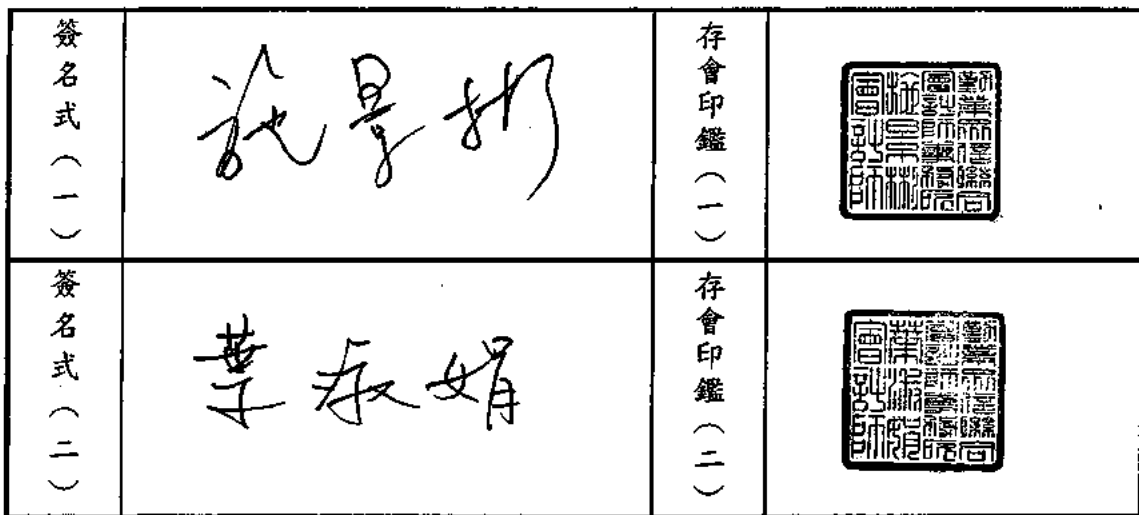 簽名式（一）
施景彬
存會印鑑（一）
勤業眾信聯合
會計師事務所
施景彬
會計師
簽名式（二）
葉淑娟
存會印鑑（二）
勤業眾信聯合
會計師事務所
葉淑娟
會計師